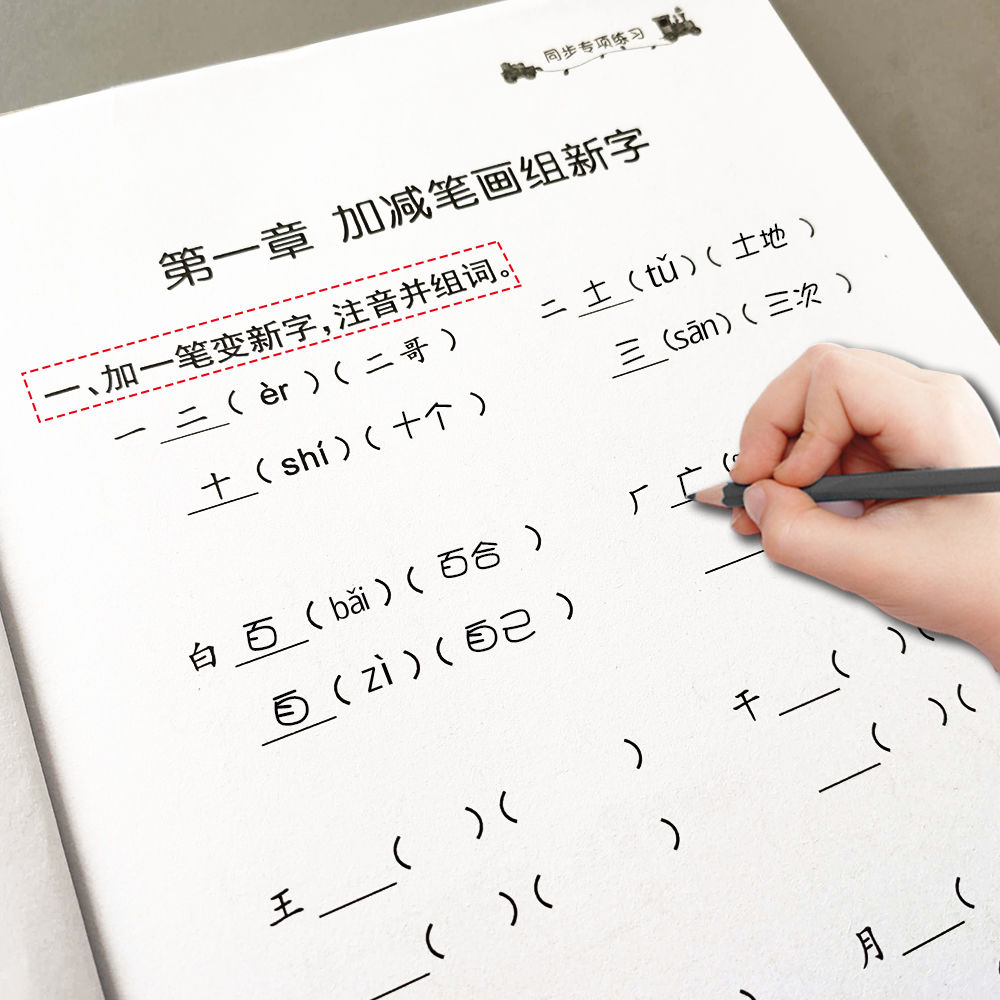 同步专项练习
第一章 加减笔画组新字
一、加一笔变新字,注音并组词。
一 二 ( èr ) ( 二哥 )
十 ( shí ) ( 十个 )
二 土 ( tǔ ) ( 土地 )
三 (sān) ( 三次 )
白 百 ( bǎi ) ( 百合 )
自 ( zì ) ( 自己 )
厂 广 (
王 ( ) ( )
( ) ( )
千 ( ) (
( ) (
月 (